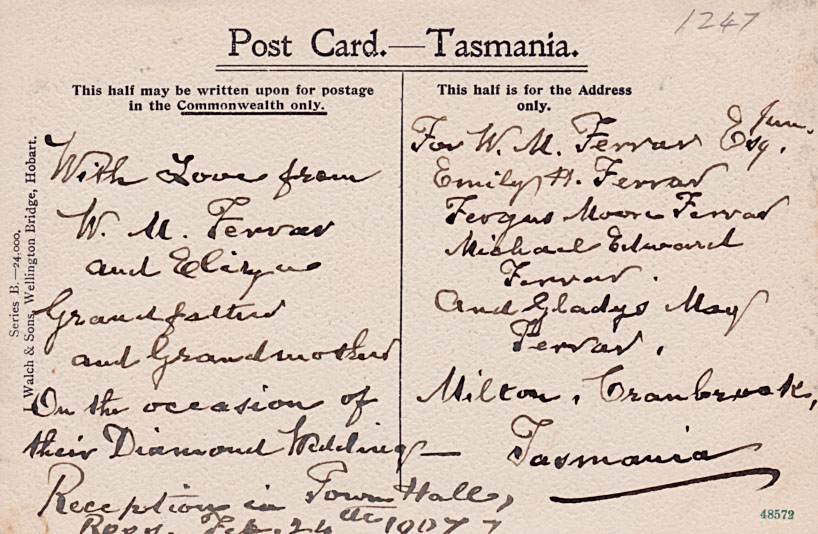 1247
Post Card.—Tasmania.
This half may be written upon for postage
in the Commonwealth only.
With Love from
W. M. Ferrar
and
Grandfather
and Grandmother
On the occasion of
their Diamond Wedding—
Reception in Town Hall,
Ross. Feb. 24th 1907
This half is for the Address
only.
Jun.
For W. M. Ferrar Esq.
Emily H. Ferrar
Fergus Moore Ferrar
Michael Edward
Ferrar.
And Gladys May
Ferrar,
Milton, Cranbrook,
Tasmania
Series B.—24,000.
J. Walch & Sons, Wellington Bridge, Hobart.
48572